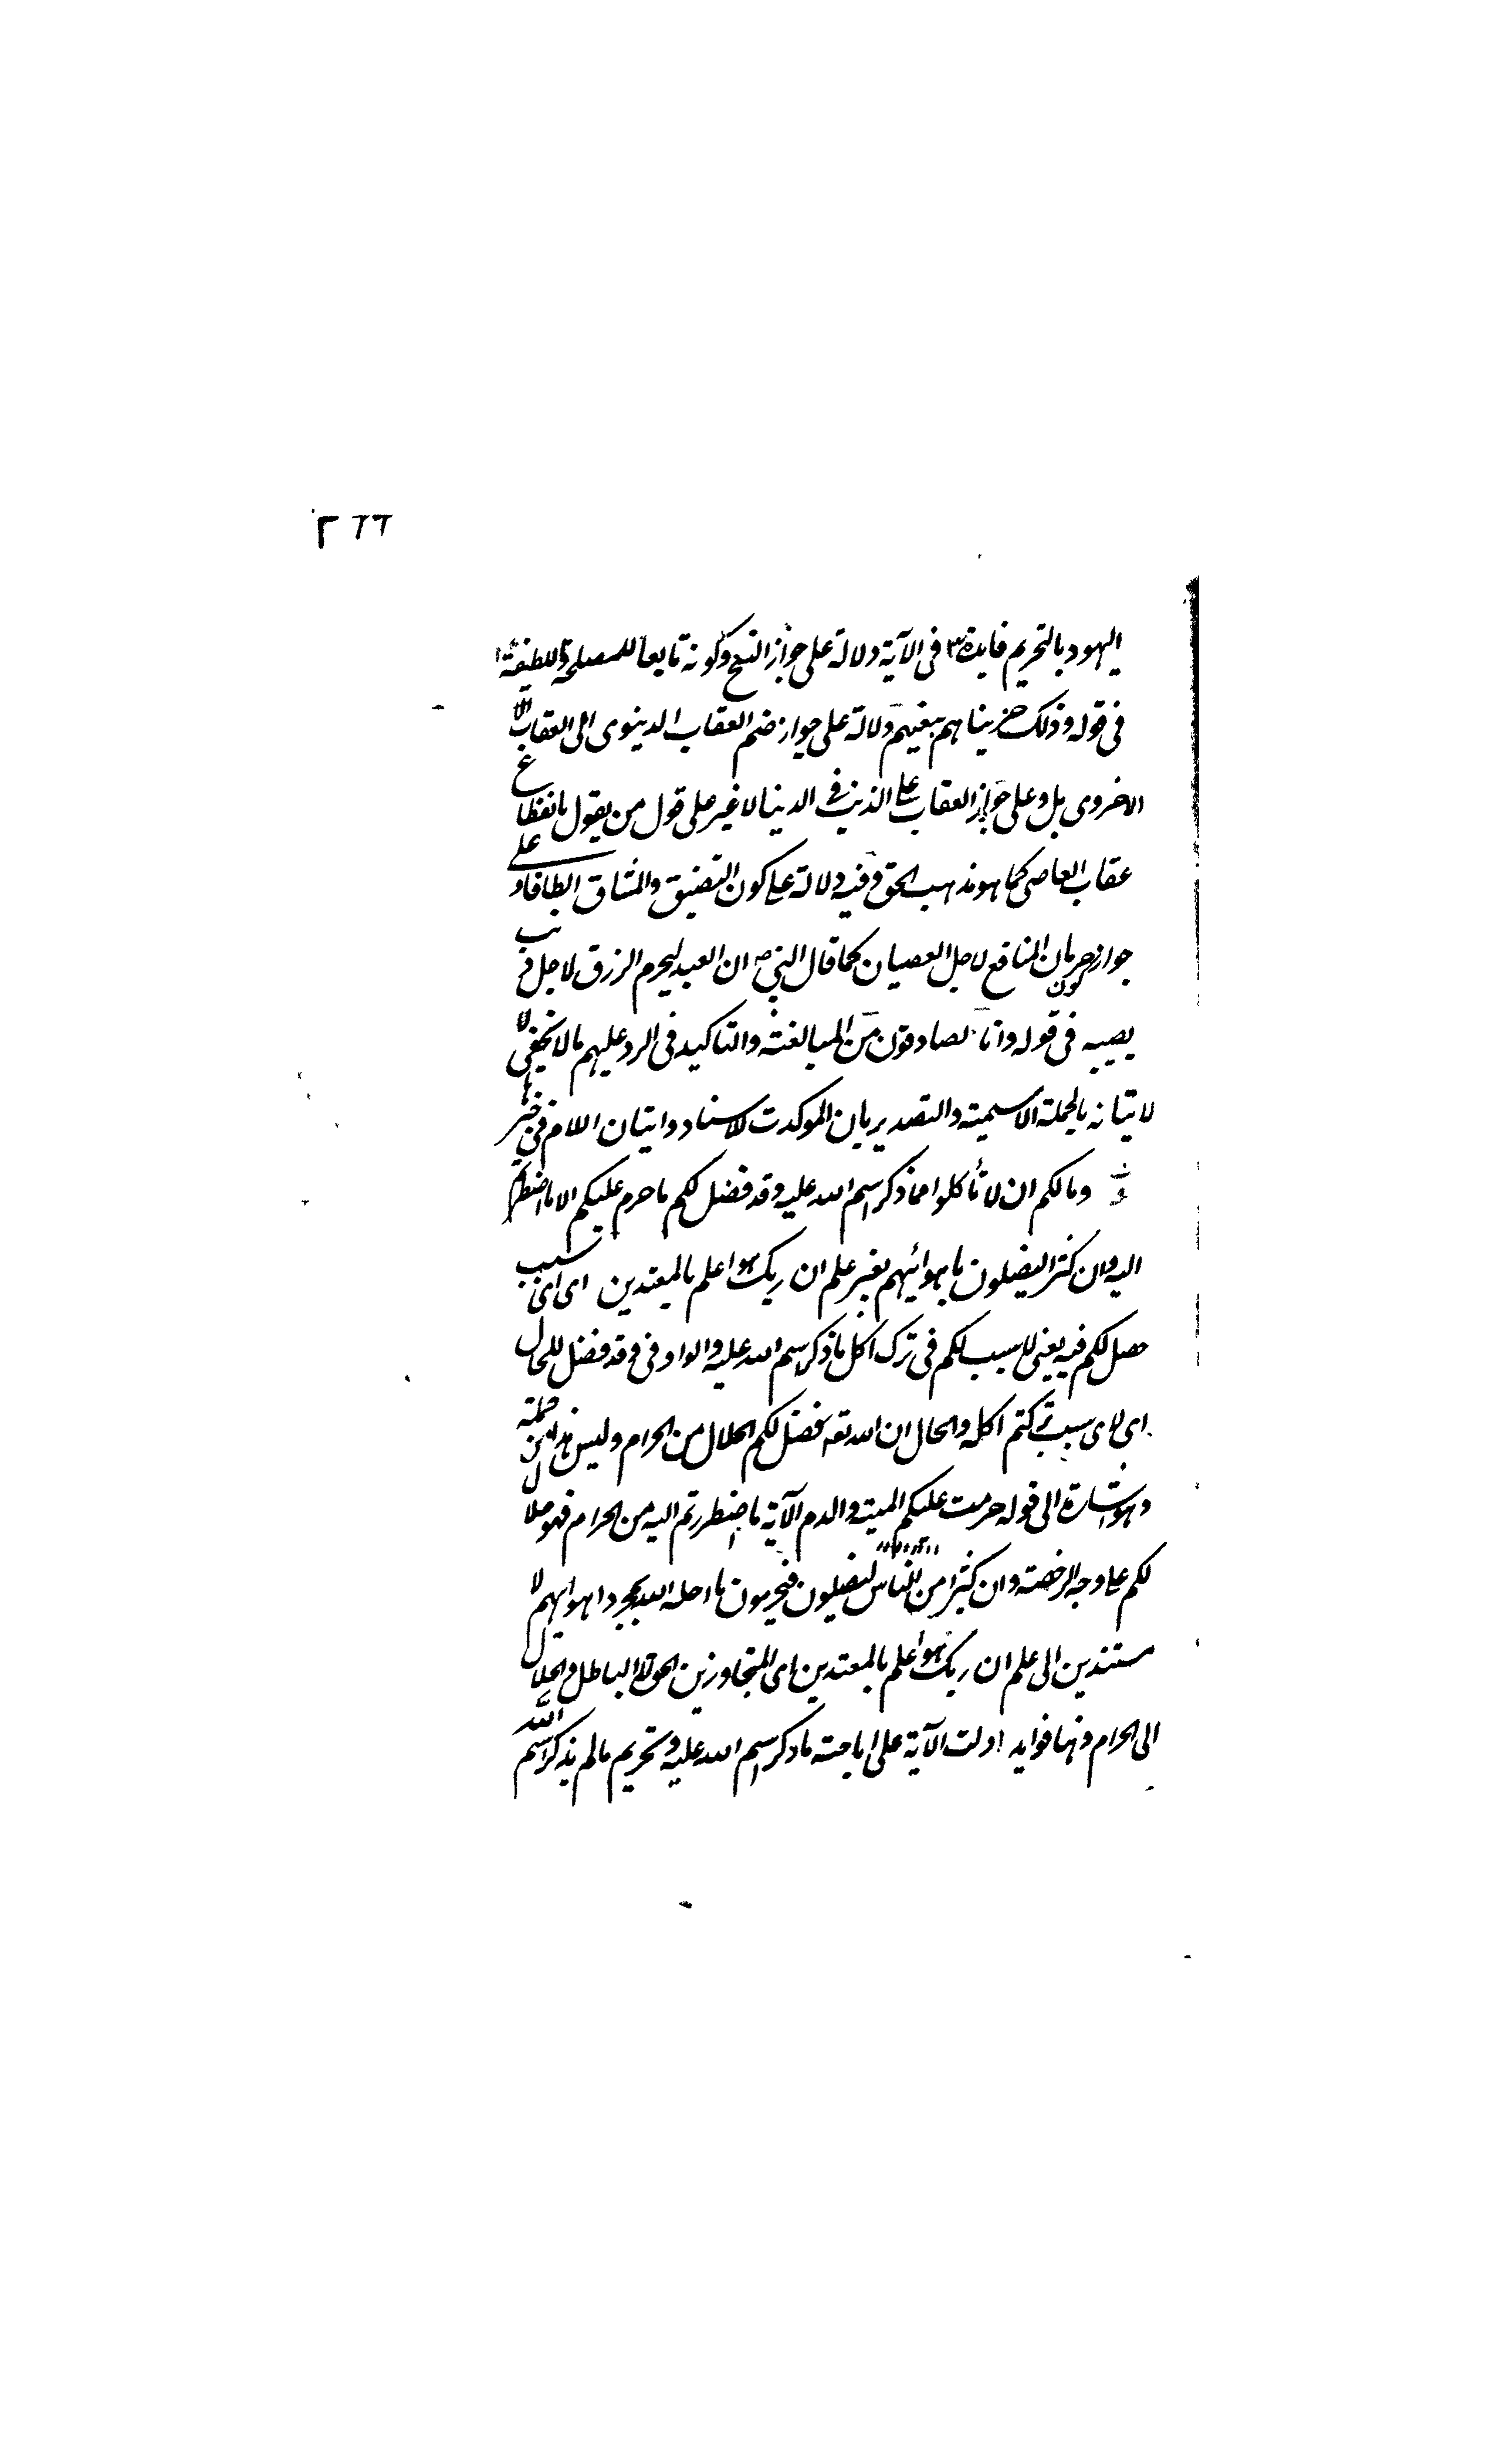 ٢٦٦
اليهود بالتحريم فايدة٣ فى الآية دلالة على جواز النسخ وكونه تابعا للمصلحة واللطيفة
فى قوله وذلك جزيناهم ببغيهم دلالة على جواز ضم العقاب الدينوى الى العقاب
الاخروى بل وعلى جواز العقاب على الذنب فى الدينا لا غير على قول من يقول بانقطاع
عقاب العاصى كما هو مذهب الحق وفيه دلالة على كون التضيق والمشاق الطافا و على
جواز حرمان المنافع لاجل العصيان كما قال النبى ص ان العبد ليحرم الرزق لاجل ذنب
يصيبه فى قوله وانا لصادقون من المبالغة والتاكيد فى الرد عليهم مالا يخفى لا
لاتيانه بالجملة الاسمية والتصدير بان الموكدت للاسناد واتيان اللام فى خبرها
وما لكم ان لا تأكلوا مما ذكر اسم الله عليه وقد فصل لكم ما حرم عليكم الا ما اضطررتم
اليه وان كثيرا ليضلون باهوائهم بغير علم ان ربك هو اعلم بالمعتدين اى اى سبب
حصل لكم فيه يعنى لا سبب لكم فى ترك اكل ما ذكر اسم الله عليه والواو فى وقد فصل للحال
اى لاى سبب تركتم اكله والحال ان الله تعه فصل لكم الحلال من الحرام وليس هذا من جملته
وهو اشارة الى قوله حرمت عليكم الميتة والدم الآية ما اضطررتم اليه من الحرام فهو حلال
لكم على وجه الرخصة وان كثيرا من الناس ليضلون فيحرمون ما احله الله بمجرد اهوايهم لا
مستندين الى علم ان ربك هو اعلم بالمعتدين اى المتجاوزين الحق الى الباطل والحلال
الى الحرام وفيها فوايد ا دلت الآية على اباحته ما ذكر اسم الله عليه وتحريم مالم يذكر اسم الله